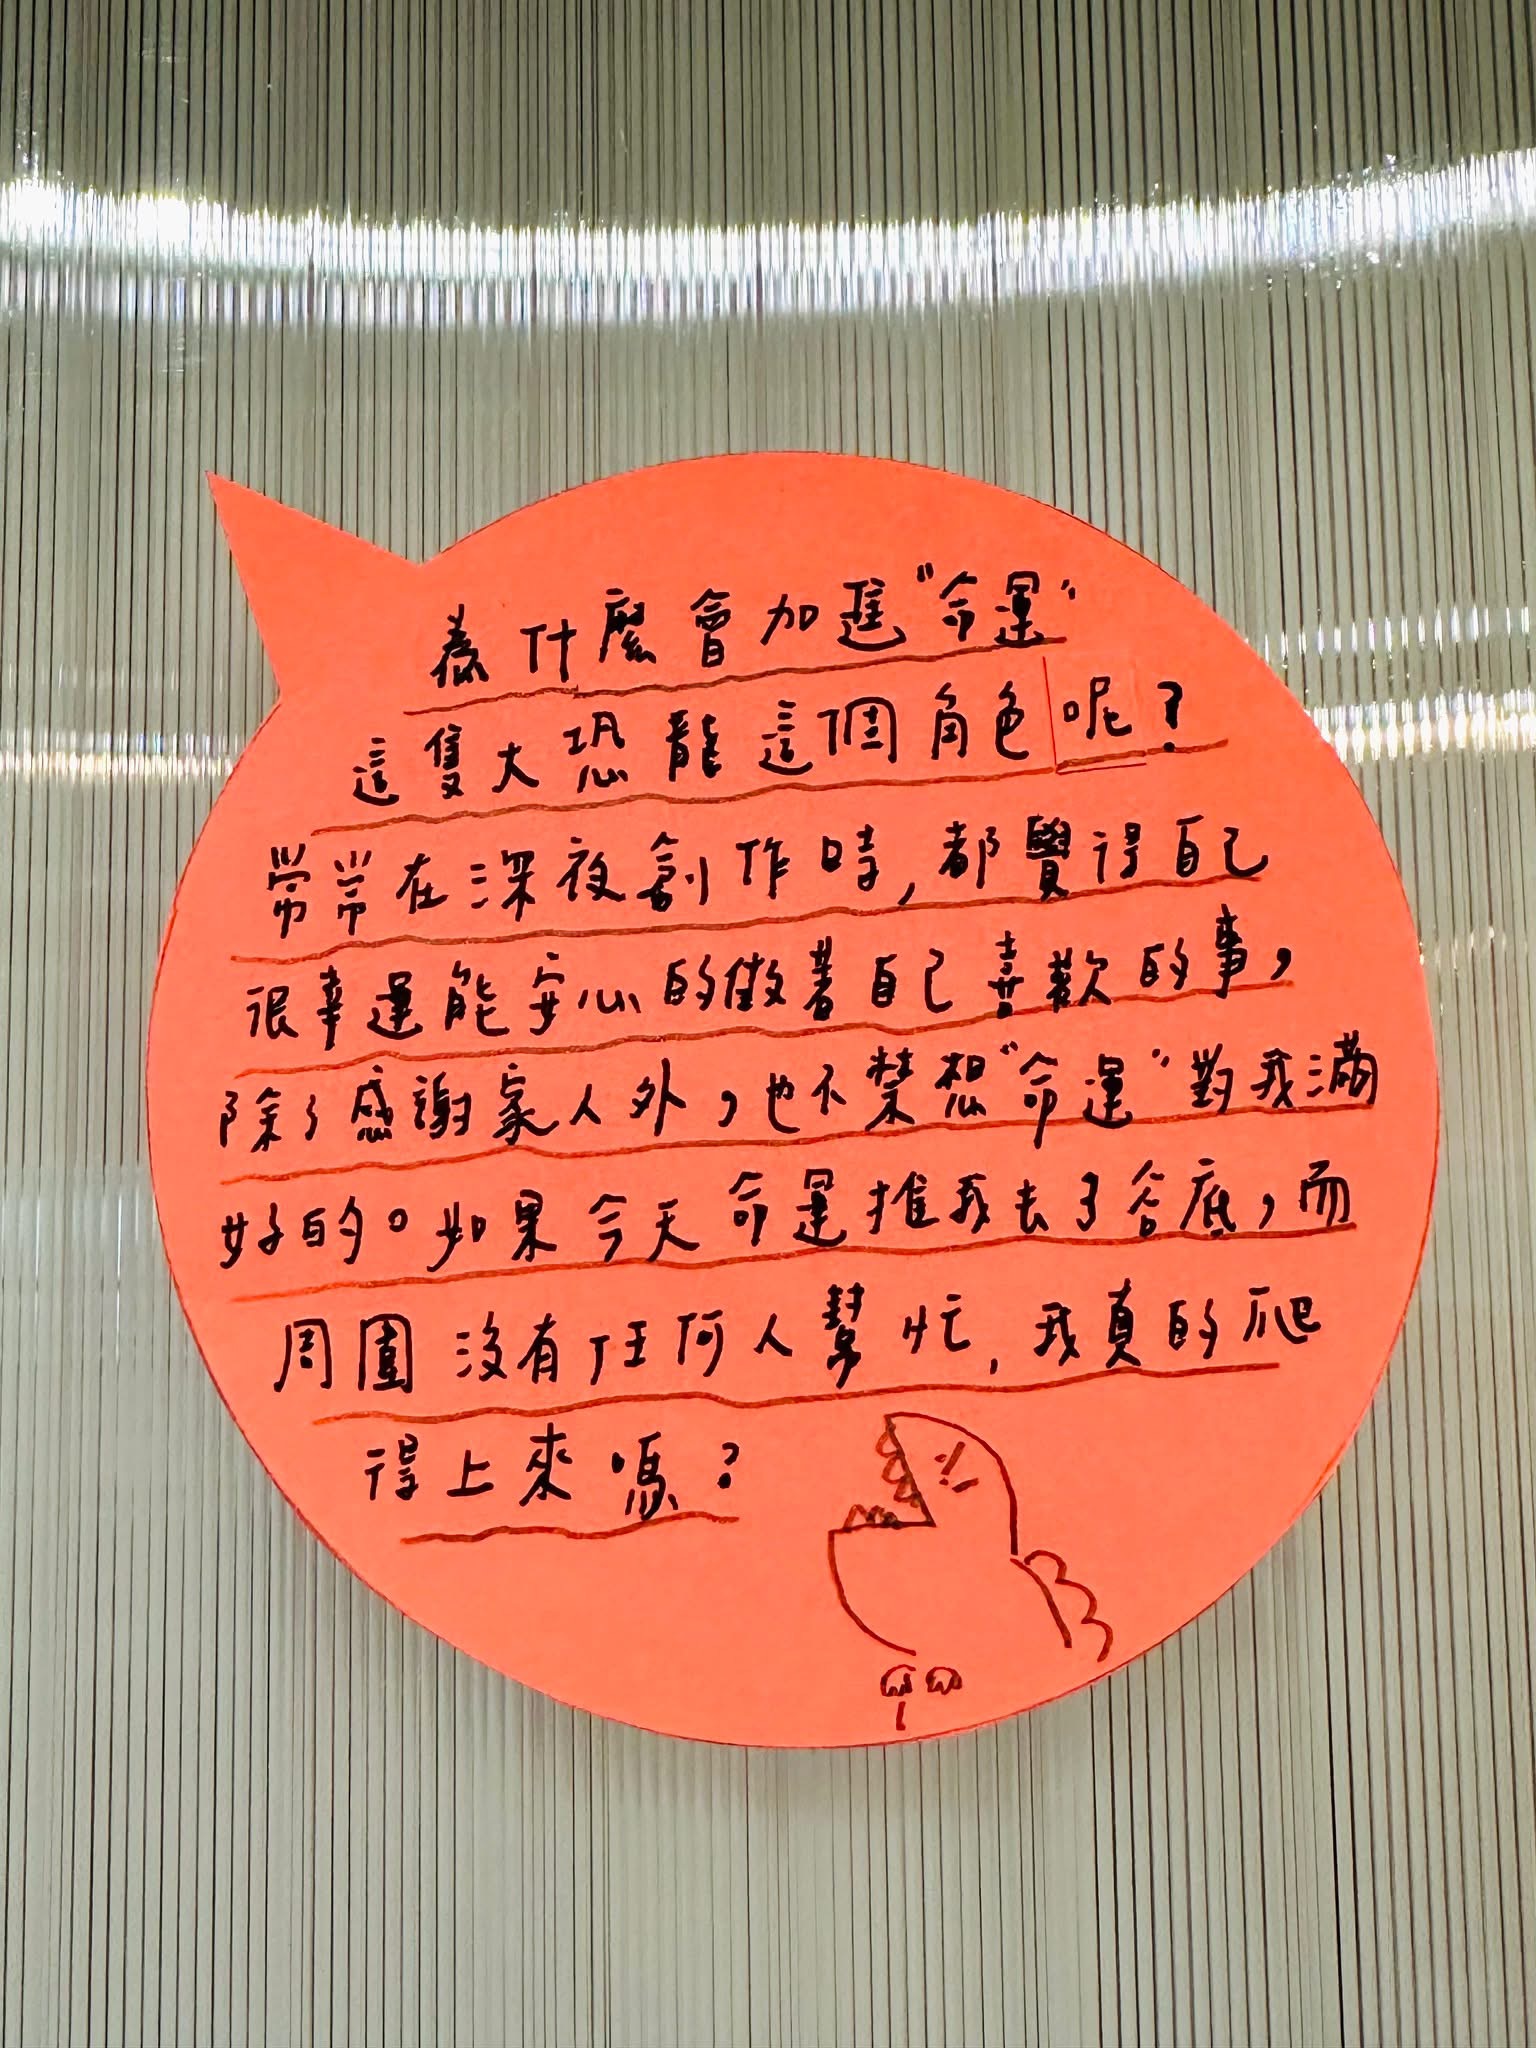 為什麼會加進"命運"
這隻大恐龍這個角色呢？
常常在深夜創作時,都覺得自己
很幸運能安心的做著自己喜歡的事，
除了感謝家人外，也不禁想"命運"對我滿
好的。如果今天命運推我去了谷底，而
周圍沒有任何人幫忙,我真的爬
得上來嗎？